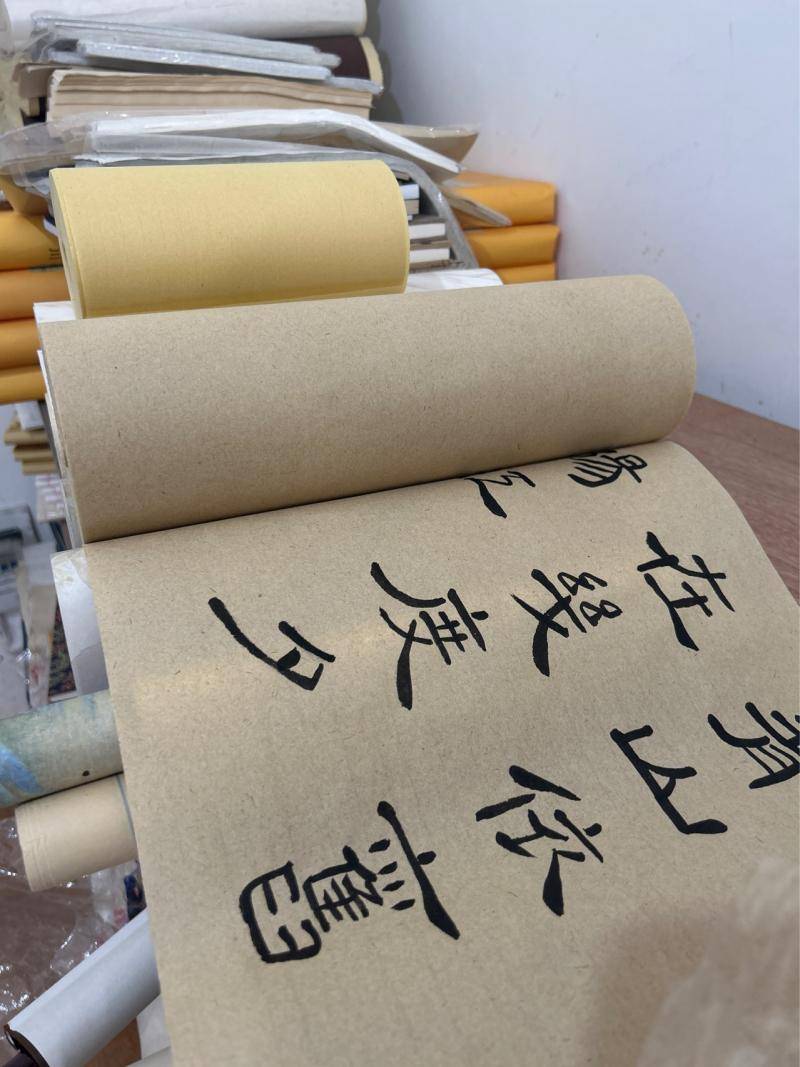 青山依舊
在幾度夕
陽